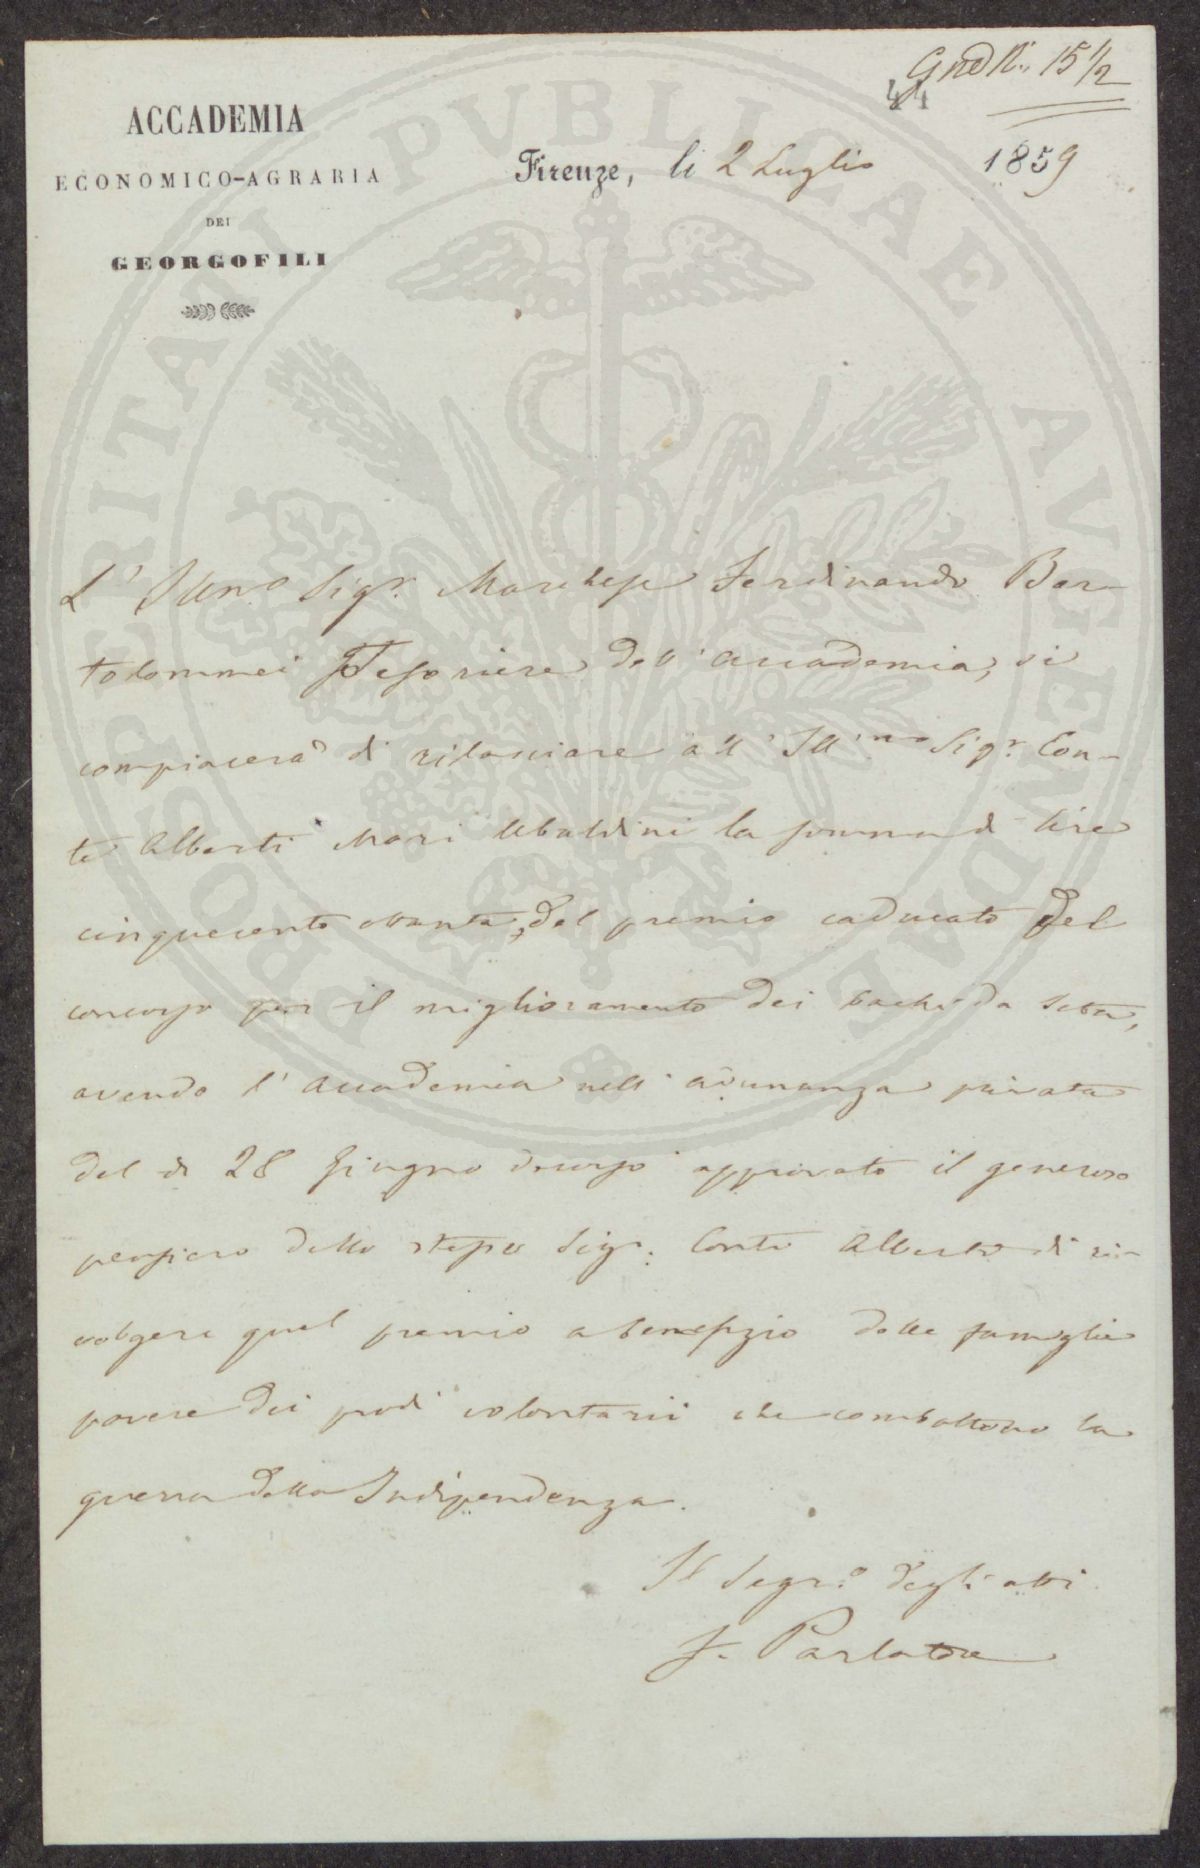 Gnd N.: 15 1/2
44
ACCADEMIA
ECONOMICO-AGRARIA
DEI
GEORGOFILI
Firenze, li 2 Luglio 1859
PROSPERITATI PVBLICAE AVGENDAE
L' Illmo. Sigr. Marchese Ferdinando Bar-
tolommei Tesoriere dell' Accademia, si
compiacerà di rilasciare all' Ill'mo Sigr. Con-
te Alberti Mari Ubaldini la somma di lire
cinquecento ottanta, del premio caducato del
concorso per il miglioramento dei bachi da seta,
avendo l' Accademia nell' adunanza privata
del dì 28 Giugno decorso approvato il generoso
pensiero dello stesso Sigr. Conte Alberti di ri-
volgere quel premio a benefizio delle famiglie
povere dei prodi volontarii che combattono la
guerra della Indipendenza.
Il Segr.o degli atti
F. Parlatore